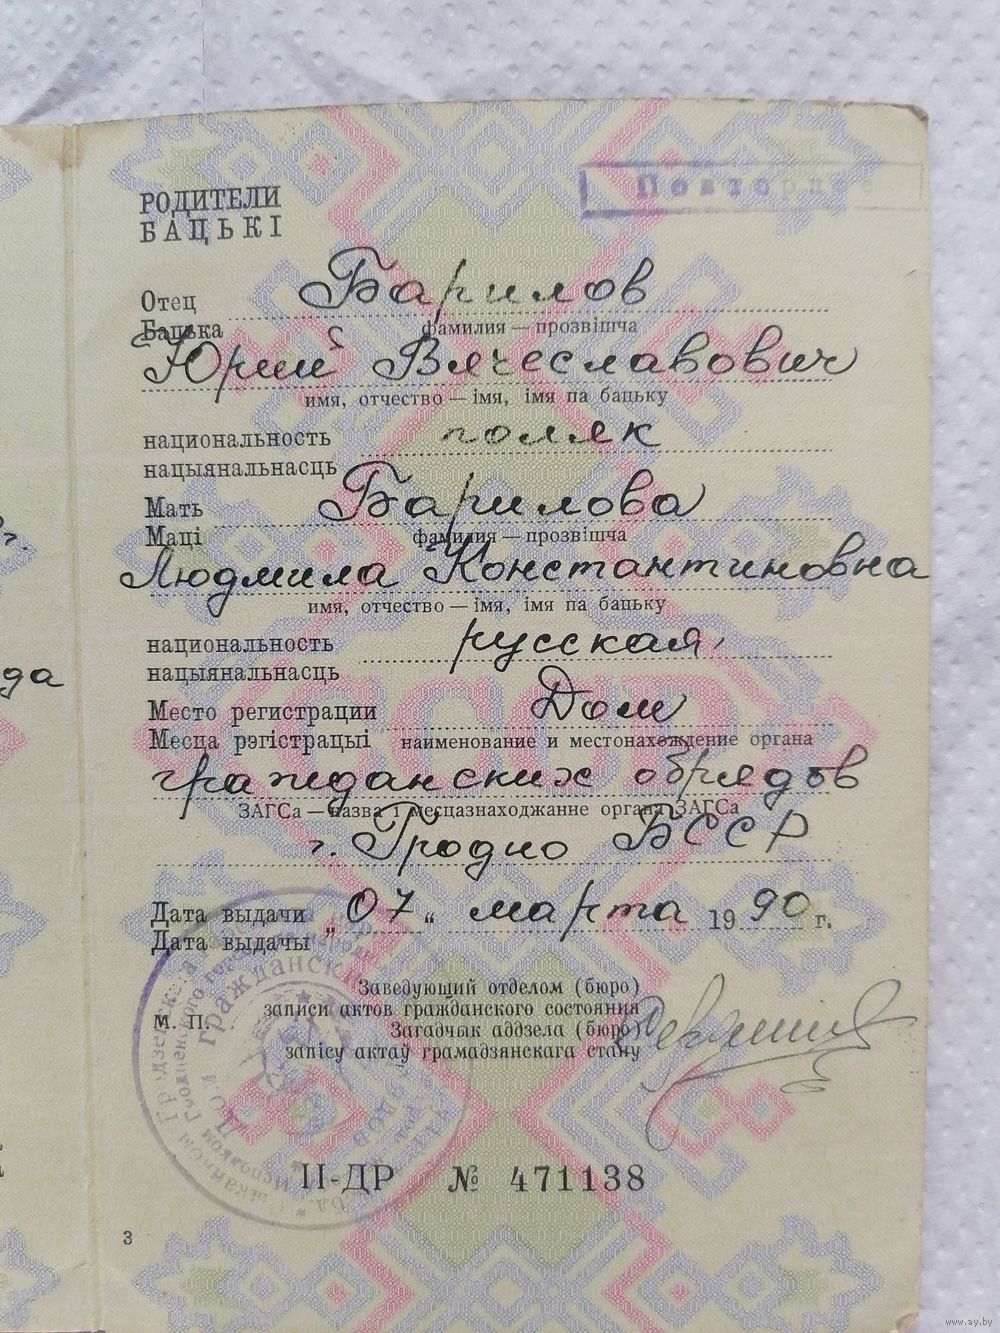 Повторное
РОДИТЕЛИ
БАЦЬКІ
Отец Барилов
Бацька фамилия — прозвішча
Юрий Вячеславович
имя, отчество — імя, імя па бацьку
национальность поляк
нацыянальнасць
Мать Барилова
Маці фамилия — прозвішча
Людмила Константиновна
имя, отчество — імя, імя па бацьку
национальность русская
нацыянальнасць
да
СССР
Место регистрации Дом
Месца рэгістрацыі наименование и местонахождение органа
гражданских обрядов
ЗАГСа — назва і месцазнаходжанне органа ЗАГСа
г. Гродно БССР
Дата выдачи „07“ марта 1990 г.
Дата выдачы
Заведующий отделом (бюро)
записи актов гражданского состояния
М. П. Загадчык аддзела (бюро)
запісу актаў грамадзянскага стану
II-ДР № 471138
3
www.ay.by